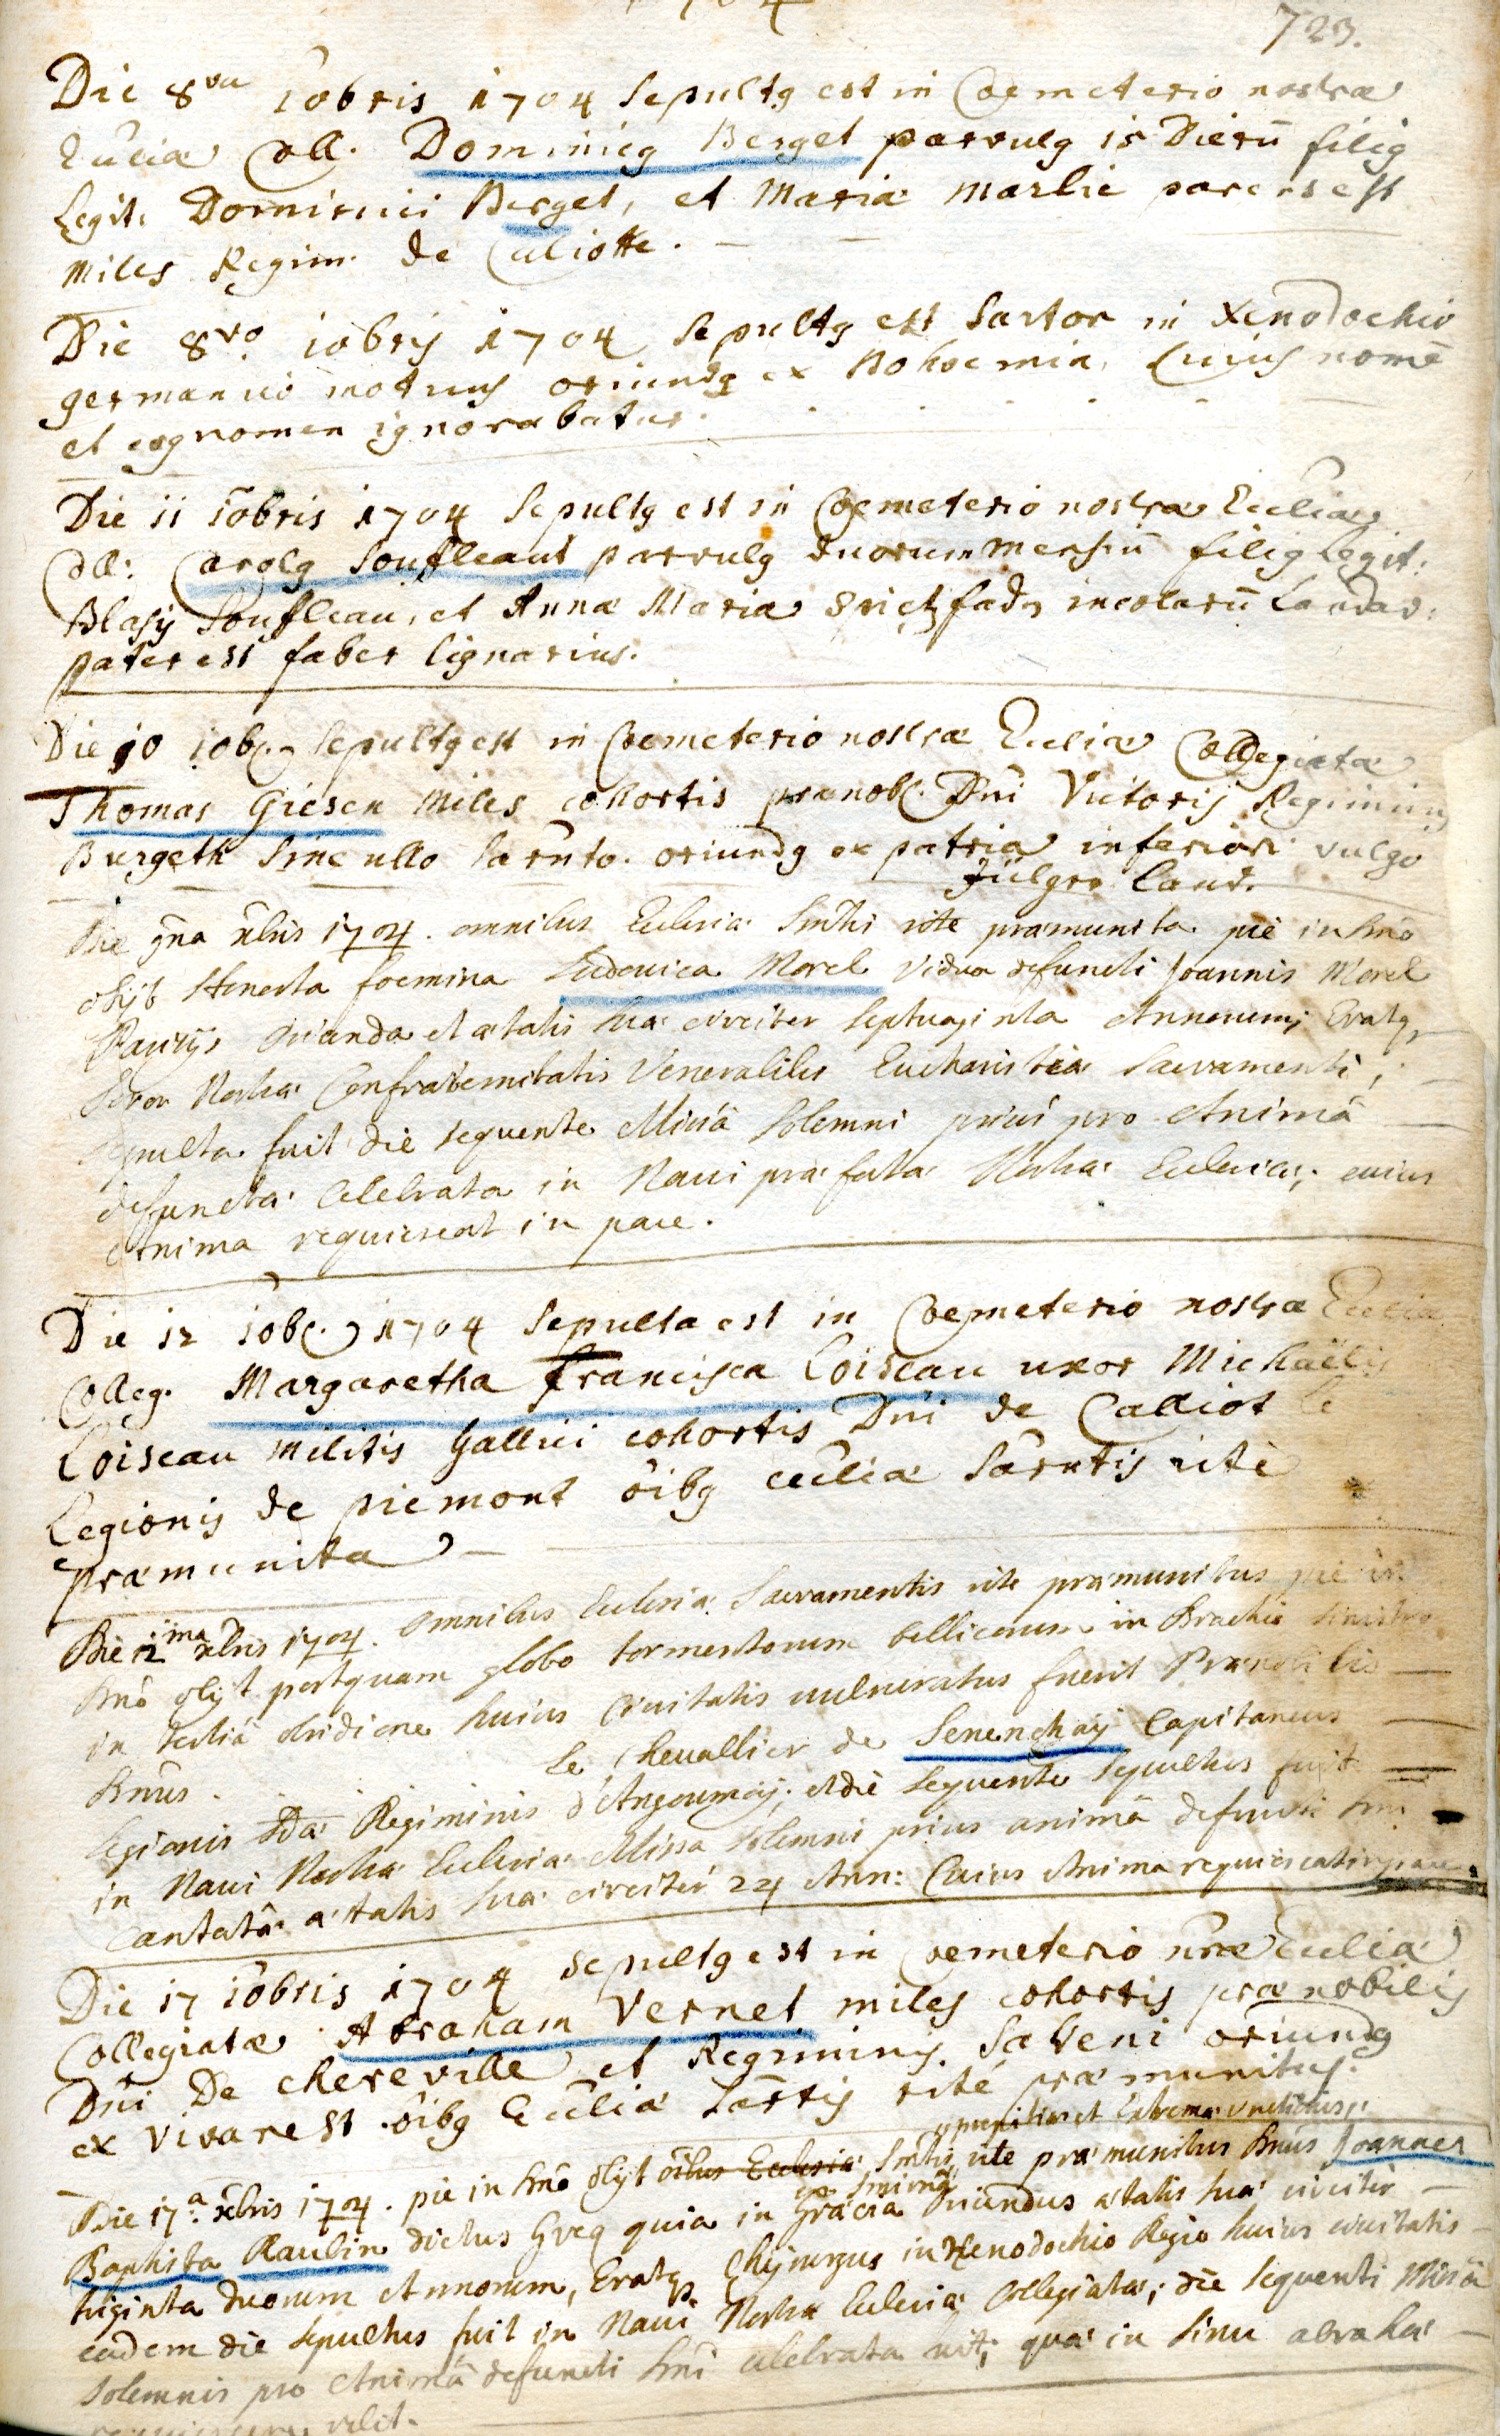 723.
Die 8va 10bris 1704 Sepultg est in Coemeterio nostrae
Eccliae Coll. Dominicg Berget parvulg 15 Dierū filig
Legit: Dominici Berget, et Maria Marlie parens est
miles Regim. de Caliotte.
Die 8vo 10brij 1704 Sepultg est Sartor in Xenodochio
germanuo motuus oriundg ex Bohoemia, Cuius nomē
et cognomen ignorabatur.
Die 11 10bris 1704 Sepultg est in Coemeterio nostrae Eccliae
Coll: Carolg Soufleaut parvulg duorum mensiū filig Legit:
Blasij Soufleau, et Anna Maria incolarū Landav:
pater est faber lignarius.
Die 10 10b. Sepultg est in Coemeterio nostrae Eccliae Collegiatae
Thomas Giesen miles cohortis praenob. Dni Victoris Regiminis
Burgeth Sine ullo oriundg ex patria inferiori vulgo
Jülger Land.
Die xbris 1704. omnibus Ecclesia rite praemunita pie in Dnō
obijt Honesta foemina Ludovica Morel Vidua defuncti Joannis Morel
Parisijs Oriunda et aetatis sua circiter Septuaginta Annorum; Eratq
Soror Nostra Confraternitatis Venerabilis Eucharistia Sacramenti;
Sepulta fuit die sequente Missâ Solemni priùs pro Animâ
defuncta Celebrata in Navi praefata Nostra Ecclesia; cuius
Anima requiescat in pace.
Die 12 10b. 1704 Sepulta est in Coemeterio nostrae Eccliae
Colleg. Margaretha Francisca Loiseau uxor Michaëlis
Loiseau militis Gallici cohortis Dni de Calliot le
Legionis de piemont ōibg eccliae ritè
praemunita
Die 12 ima xbris 1704. omnibus Ecclesia Sacramentis rite praemunitus pie in
Dnō obijt postquam globo tormentorum bellicorum in Brachio Sinistro
in tertiâ obsidione huius Civitatis vulneratus fuerit Praenobilis
Dnus . . Le Chevallier de Senenchaij Capitaneus
Legionis Regiminis d'Angoumoij; et die Sequente Sepultus fuit
in Navi Nostra Ecclesia Missa Solemni prius animâ defuncti
Cantatâ aetatis sua circitèr 24 Ann: Cuius Anima requiescat in pace.
Die 17 10bris 1704 Sepultg est in Coemeterio nrae Eccliae
Collegiatae Abraham Vernet miles cohortis praenobilis
Dni De Chereville et Regiminis Saveni oriundg
ex Vivarest ōibg Eccliae rité praemunitus.
et Extrema unctionis
Die 17a xbris 1704. pie in Dnō obijt ōibus Ecclesia rite praemunitus Dnus Joannes
ex Smirnâ
Baptista Raulin dictus Greq quia in Gracia Oriundus aetatis sua circitèr
triginta duorum Annorum, Eratq Chijrurgus in Xenodochio Regio huius civitatis
eadem die Sepultus fuit in Navi Nostra Ecclesia Collegiata; die Sequenti Missâ
Solemnis pro Animâ defuncti Dni celebrata quae in Sinu abrahae
velit.